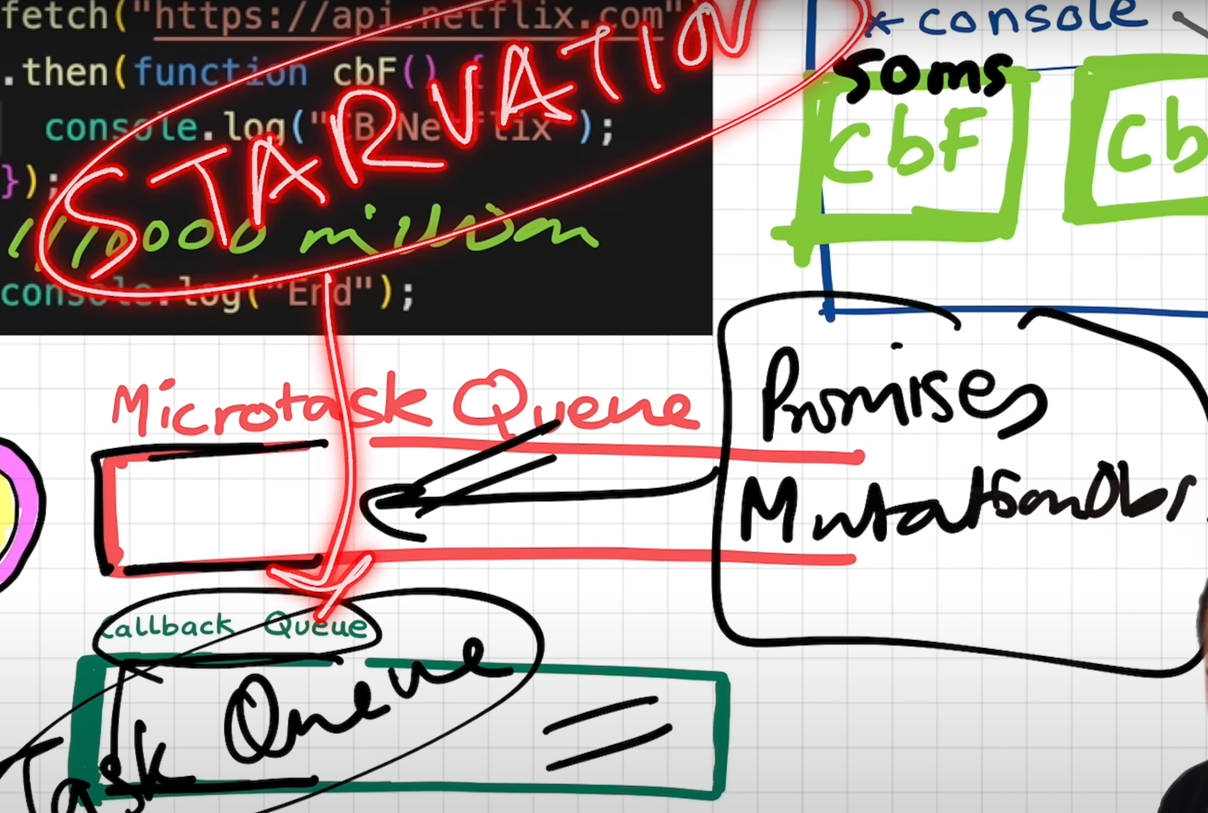 fetch("https://api.netflix.com")
.then(function cbF() {
console.log("CB Netflix");
});
STARVATION
million
console.log("End");
* console
cbF
Cb
Microtask Queue
Promises
MutationObs
Callback Queue
Task Queue